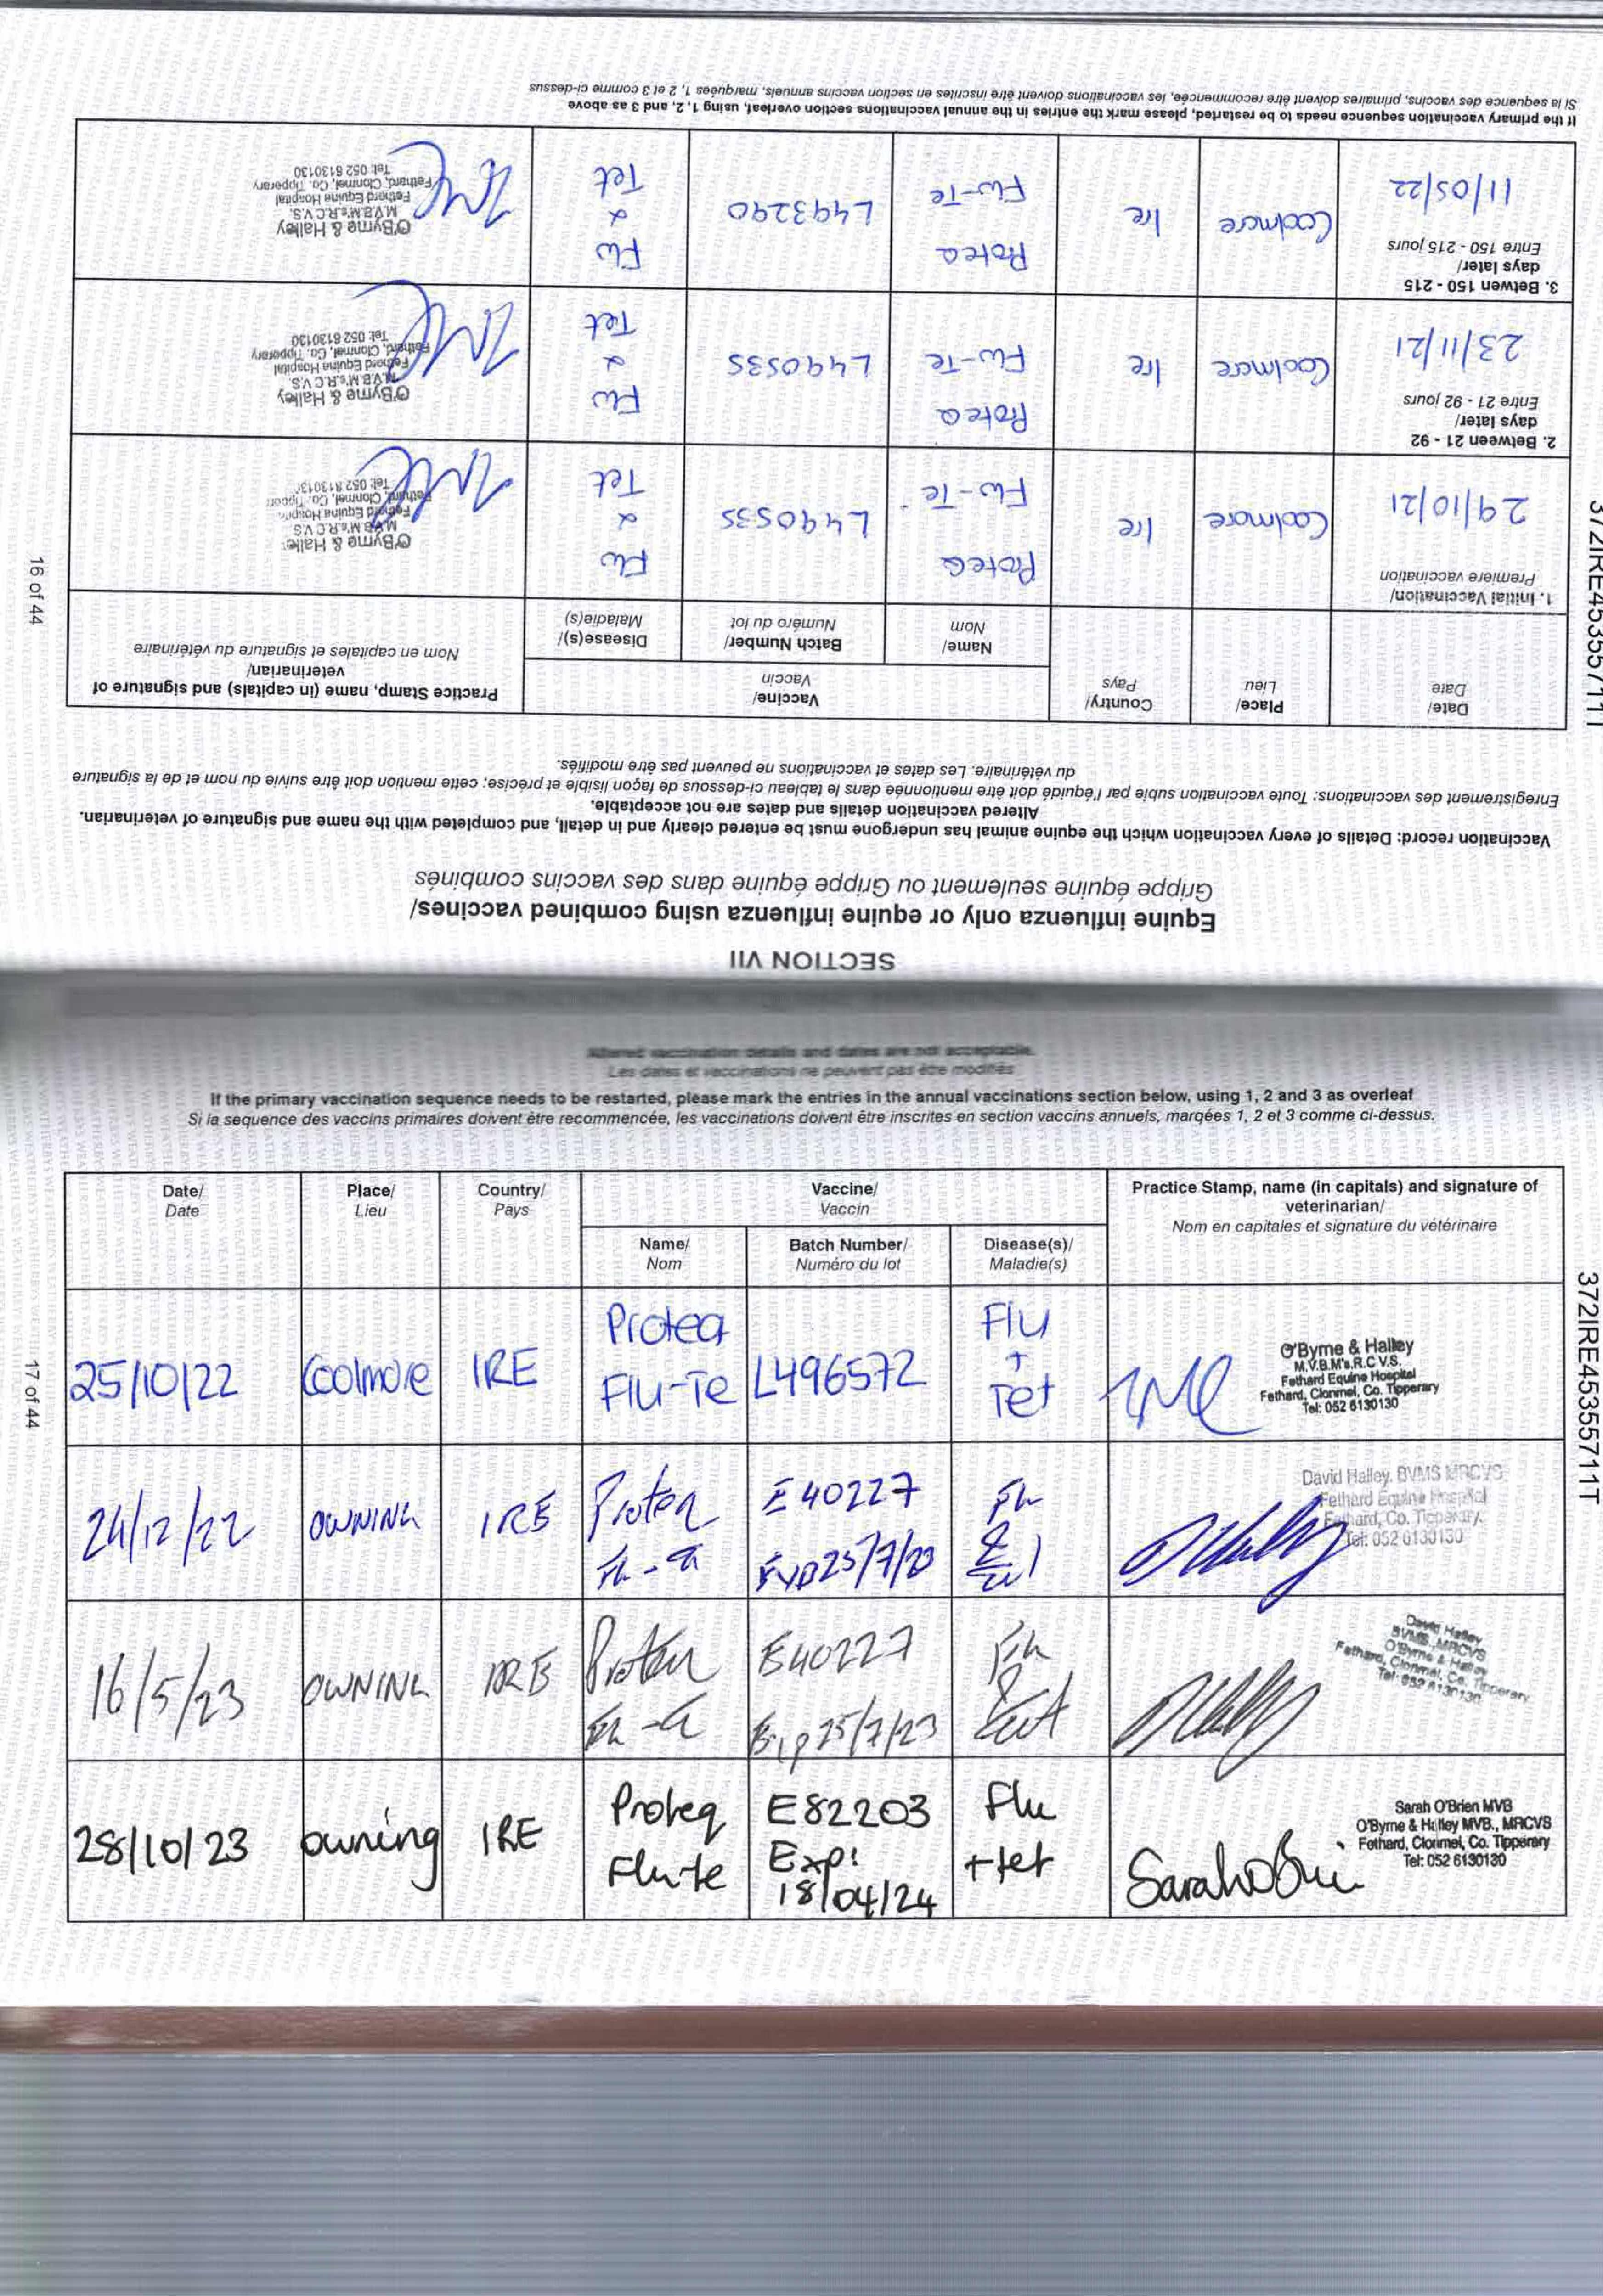 SECTION VII
Equine influenza only or equine influenza using combined vaccines/
Grippe équine seulement ou Grippe équine dans des vaccins combinés
Vaccination record: Details of every vaccination which the equine animal has undergone must be entered clearly and in detail, and completed with the name and signature of veterinarian.
Altered vaccination details and dates are not acceptable.
Enregistrement des vaccinations: Toute vaccination subie par l'équidé doit être mentionnée dans le tableau ci-dessous de façon lisible et précise; cette mention doit être suivie du nom et de la signature
du vétérinaire. Les dates et vaccinations ne peuvent pas être modifiés.
Date/ Place/ Country/ Vaccine/ Practice Stamp, name (in capitals) and signature of
Date Lieu Pays Vaccin veterinarian/
Name/ Batch Number/ Disease(s)/ Nom en capitales et signature du vétérinaire
Nom Numéro du lot Maladie(s)
1. Initial Vaccination/
Première vaccination
29/10/21 Coolmore Ire Proteq Flu-Te L440535 Flu & Tet
O'Byrne & Halle
M.V.B.M's.R.C.V.S
Fethard Equine Hospit
Fethard, Clonmel, Co. Tipper
Tel: 052 613013
2. Between 21 - 92
days later/
Entre 21 - 92 jours
23/11/21 Coolmore Ire Proteq Flu-Te L440535 Flu & Tet
O'Byrne & Halley
M.V.B.M's.R.C.V.S.
Fethard Equine Hospital
Fethard, Clonmel, Co. Tipperary
Tel: 052 6130130
3. Betwen 150 - 215
days later/
Entre 150 - 215 jours
11/05/22 Coolmore Ire Proteq Flu-Te L493290 Flu & Tet
O'Byrne & Halley
M.V.B.M's.R.C.V.S.
Fethard Equine Hospital
Fethard, Clonmel, Co. Tipperary
Tel: 052 6130130
If the primary vaccination sequence needs to be restarted, please mark the entries in the annual vaccinations section overleaf, using 1, 2, and 3 as above
Si la sequence des vaccins, primaires doivent être recommencée, les vaccinations doivent être inscrites en section vaccins annuels, marquées 1, 2 et 3 comme ci-dessus
16 of 44
372IRE45355711T
Altered vaccination details and dates are not acceptable.
Les dates et vaccinations ne peuvent pas être modifiés
If the primary vaccination sequence needs to be restarted, please mark the entries in the annual vaccinations section below, using 1, 2 and 3 as overleaf
Si la sequence des vaccins primaires doivent être recommencée, les vaccinations doivent être inscrites en section vaccins annuels, marqées 1, 2 et 3 comme ci-dessus.
Date/ Place/ Country/ Vaccine/ Practice Stamp, name (in capitals) and signature of
Date Lieu Pays Vaccin veterinarian/
Name/ Batch Number/ Disease(s)/ Nom en capitales et signature du vétérinaire
Nom Numéro du lot Maladie(s)
25/10/22 Coolmore IRE Proteq Flu-Te L496572 Flu + Tet
O'Byrne & Halley
M.V.B.M's.R.C.V.S.
Fethard Equine Hospital
Fethard, Clonmel, Co. Tipperary
Tel: 052 6130130
24/12/22 OWNING IRE Proteq Flu-Te E40227 Exp 25/7/23 Flu &
David Halley. BVMS MRCVS
Fethard Equine Hospital
Fethard, Co. Tipperary.
Tel: 052 6130130
16/5/23 OWNING IRE Proteq Flu-Te E40227 Exp 25/7/23 Flu
David Halley
BVMS., MRCVS
O'Byrne & Halley
Fethard, Clonmel, Co. Tipperary
Tel: 052 6130130
28/10/23 owning IRE Proteq Flu-te E82203 Exp: 18/04/24 Flu + tet
Sarah O'Brien MVB
O'Byrne & Halley MVB., MRCVS
Fethard, Clonmel, Co. Tipperary
Tel: 052 6130130
17 of 44
372IRE45355711T